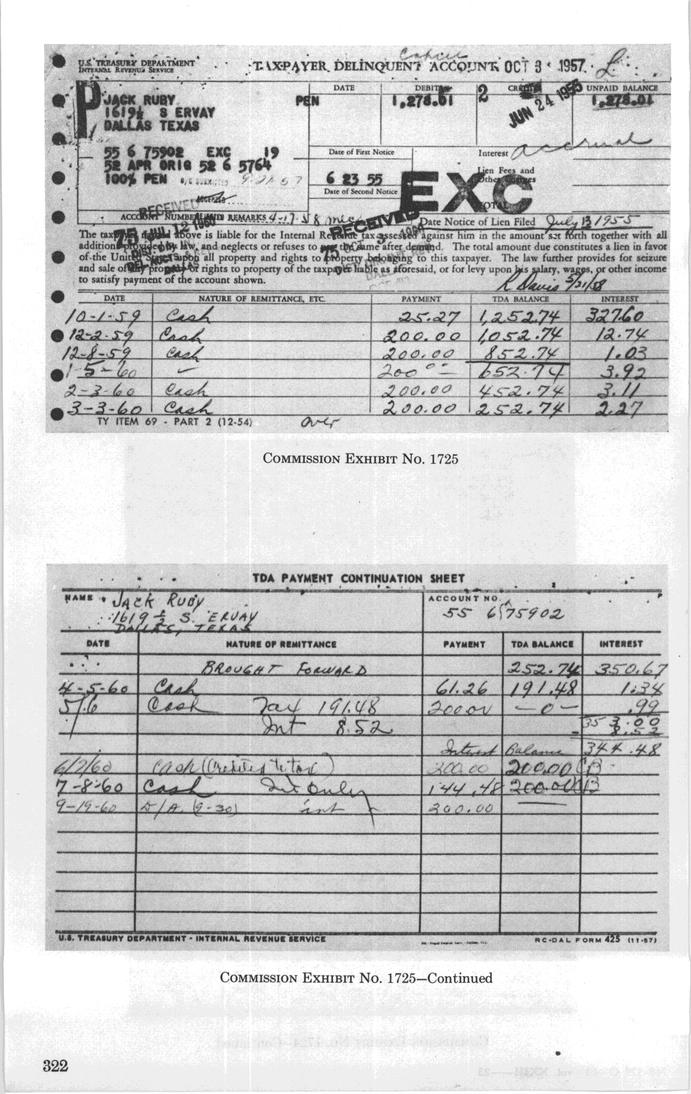 U.S. TREASURY DEPARTMENT
INTERNAL REVENUE SERVICE
TAXPAYER DELINQUENT ACCOUNT
OCT 3 1957
DATE
DEBIT
CREDIT
UNPAID BALANCE
P
JACK RUBY
1619½ S ERVAY
DALLAS TEXAS
PEN
1,278.01
2
JUN 24 1955
1,278.01
55 6 75902 EXC 19
52 APR ORIG 52 6 5764
100% PEN
Date of First Notice
6 23 55
Date of Second Notice
Interest accrual
Lien Fees and
Other
EXC
TOTAL
RECEIVED
RECEIVED
ACCOUNT NUMBER AND REMARKS 4-17-58
Date Notice of Lien Filed July 13 1955
The taxpayer named above is liable for the Internal Revenue tax assessed against him in the amount set forth together with all
additions provided by law, and neglects or refuses to pay the same after demand. The total amount due constitutes a lien in favor
of the United States upon all property and rights to property belonging to this taxpayer. The law further provides for seizure
and sale of any property or rights to property of the taxpayer liable as aforesaid, or for levy upon his salary, wages, or other income
to satisfy payment of the account shown.
R Davis 5/21/58
DATE NATURE OF REMITTANCE, ETC. PAYMENT TDA BALANCE INTEREST
10-1-59 Cash 25.27 1,252.74 327.60
12-2-59 Cash 200.00 1,052.74 12.74
12-8-59 Cash 200.00 852.74 1.03
1-5-60 200 00 652.74 3.92
2-3-60 Cash 200.00 452.74 3.11
3-3-60 Cash 200.00 252.74 2.27
TY ITEM 69 - PART 2 (12-54) over
COMMISSION EXHIBIT No. 1725
TDA PAYMENT CONTINUATION SHEET
NAME JACK RUBY
1619 ½ S. ERVAY
DALLAS, TEXAS
ACCOUNT NO.
55 6 75902
DATE NATURE OF REMITTANCE PAYMENT TDA BALANCE INTEREST
BROUGHT FORWARD 252.74 350.67
4-5-60 Cash 61.26 191.48 1.34
5/6 Cash Tax 191.48 200.00 -0- .99
Int 8.52 353.00
8.52
Interest Balance 344.48
6/7/60 Cash (Credited to tax) 200.00 200.00 CB
7-8-60 Cash Int Only 144.48 200.00 CB
9-19-60 D/A (9-30) int 200.00
U.S. TREASURY DEPARTMENT - INTERNAL REVENUE SERVICE
RC-DAL FORM 425 (11-57)
COMMISSION EXHIBIT No. 1725—Continued
322